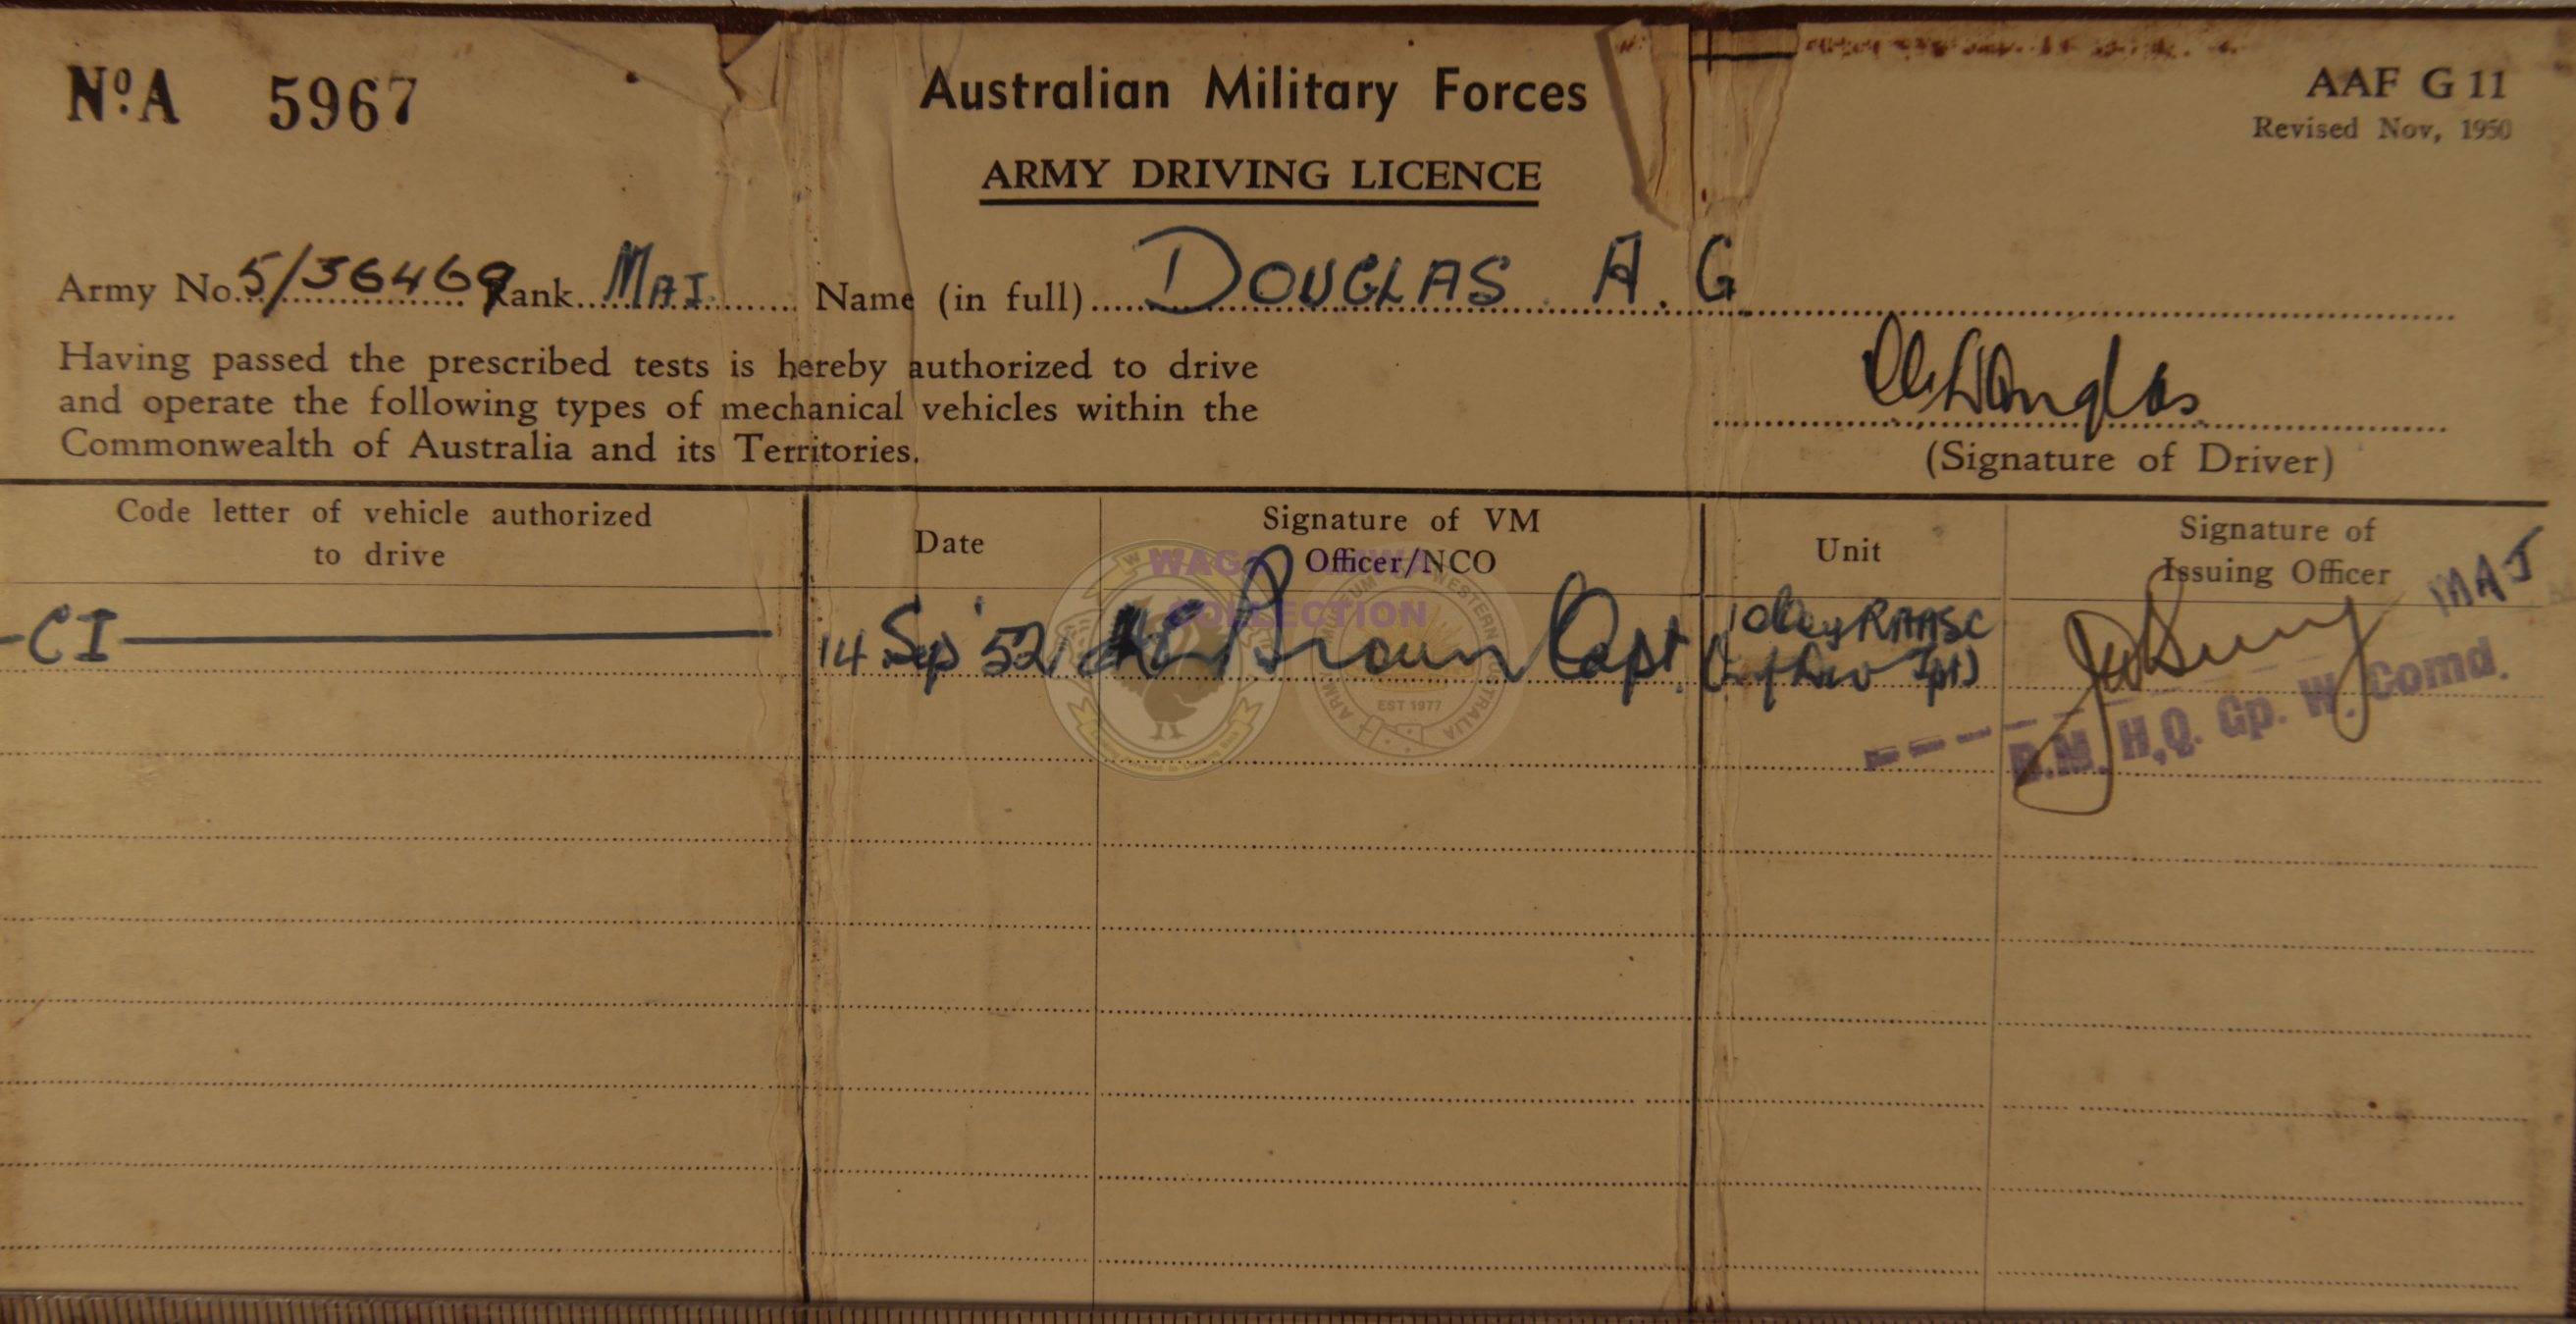 No. A 5967
Australian Military Forces
AAF G 11
Revised Nov, 1950
ARMY DRIVING LICENCE
Army No. 5/36469 Rank MAJ Name (in full) DOUGLAS A. G
Having passed the prescribed tests is hereby authorized to drive
and operate the following types of mechanical vehicles within the
Commonwealth of Australia and its Territories.
Douglas
(Signature of Driver)
Code letter of vehicle authorized
to drive
Date
Signature of VM
Officer/NCO
Unit
Signature of
Issuing Officer
MAJ
CI
14 Sep '52
Brown Capt
10 Coy RAASC
B.M. H.Q. Gp. W. Comd.
WAGA AMWA
COLLECTION
ARMY MUSEUM WESTERN AUSTRALIA
EST 1977